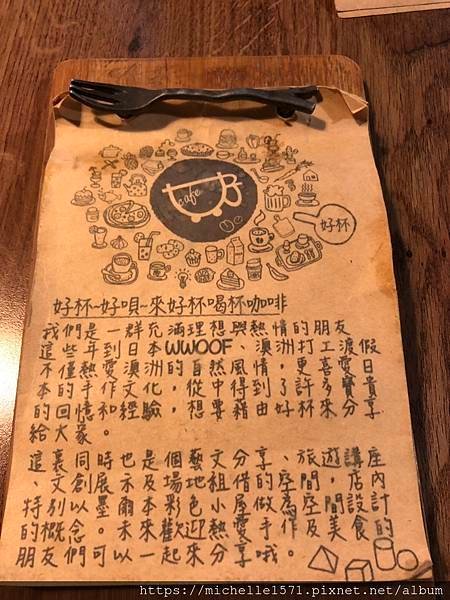 cafe
好杯
好杯~好唄~來好杯喝杯咖啡
我們是一群充滿理想與熱情的朋友
這些年到日本WWOOF、澳洲打工渡假
不僅熱愛澳洲的自然風情，更喜愛日
本的手作文化，從中得到了許多寶貴
的回憶和經驗，想要藉由好杯來分享
給大家。
這裏同時也是個藝文分享、旅遊講座
、文創展示及場地租借的空間，店內
特別以墨爾本彩色小屋做為空間設計
的概念。未來歡迎熱愛手作及美食的
朋友們可以一起來分享哦。
https://michelle1571.pixnet.net/album